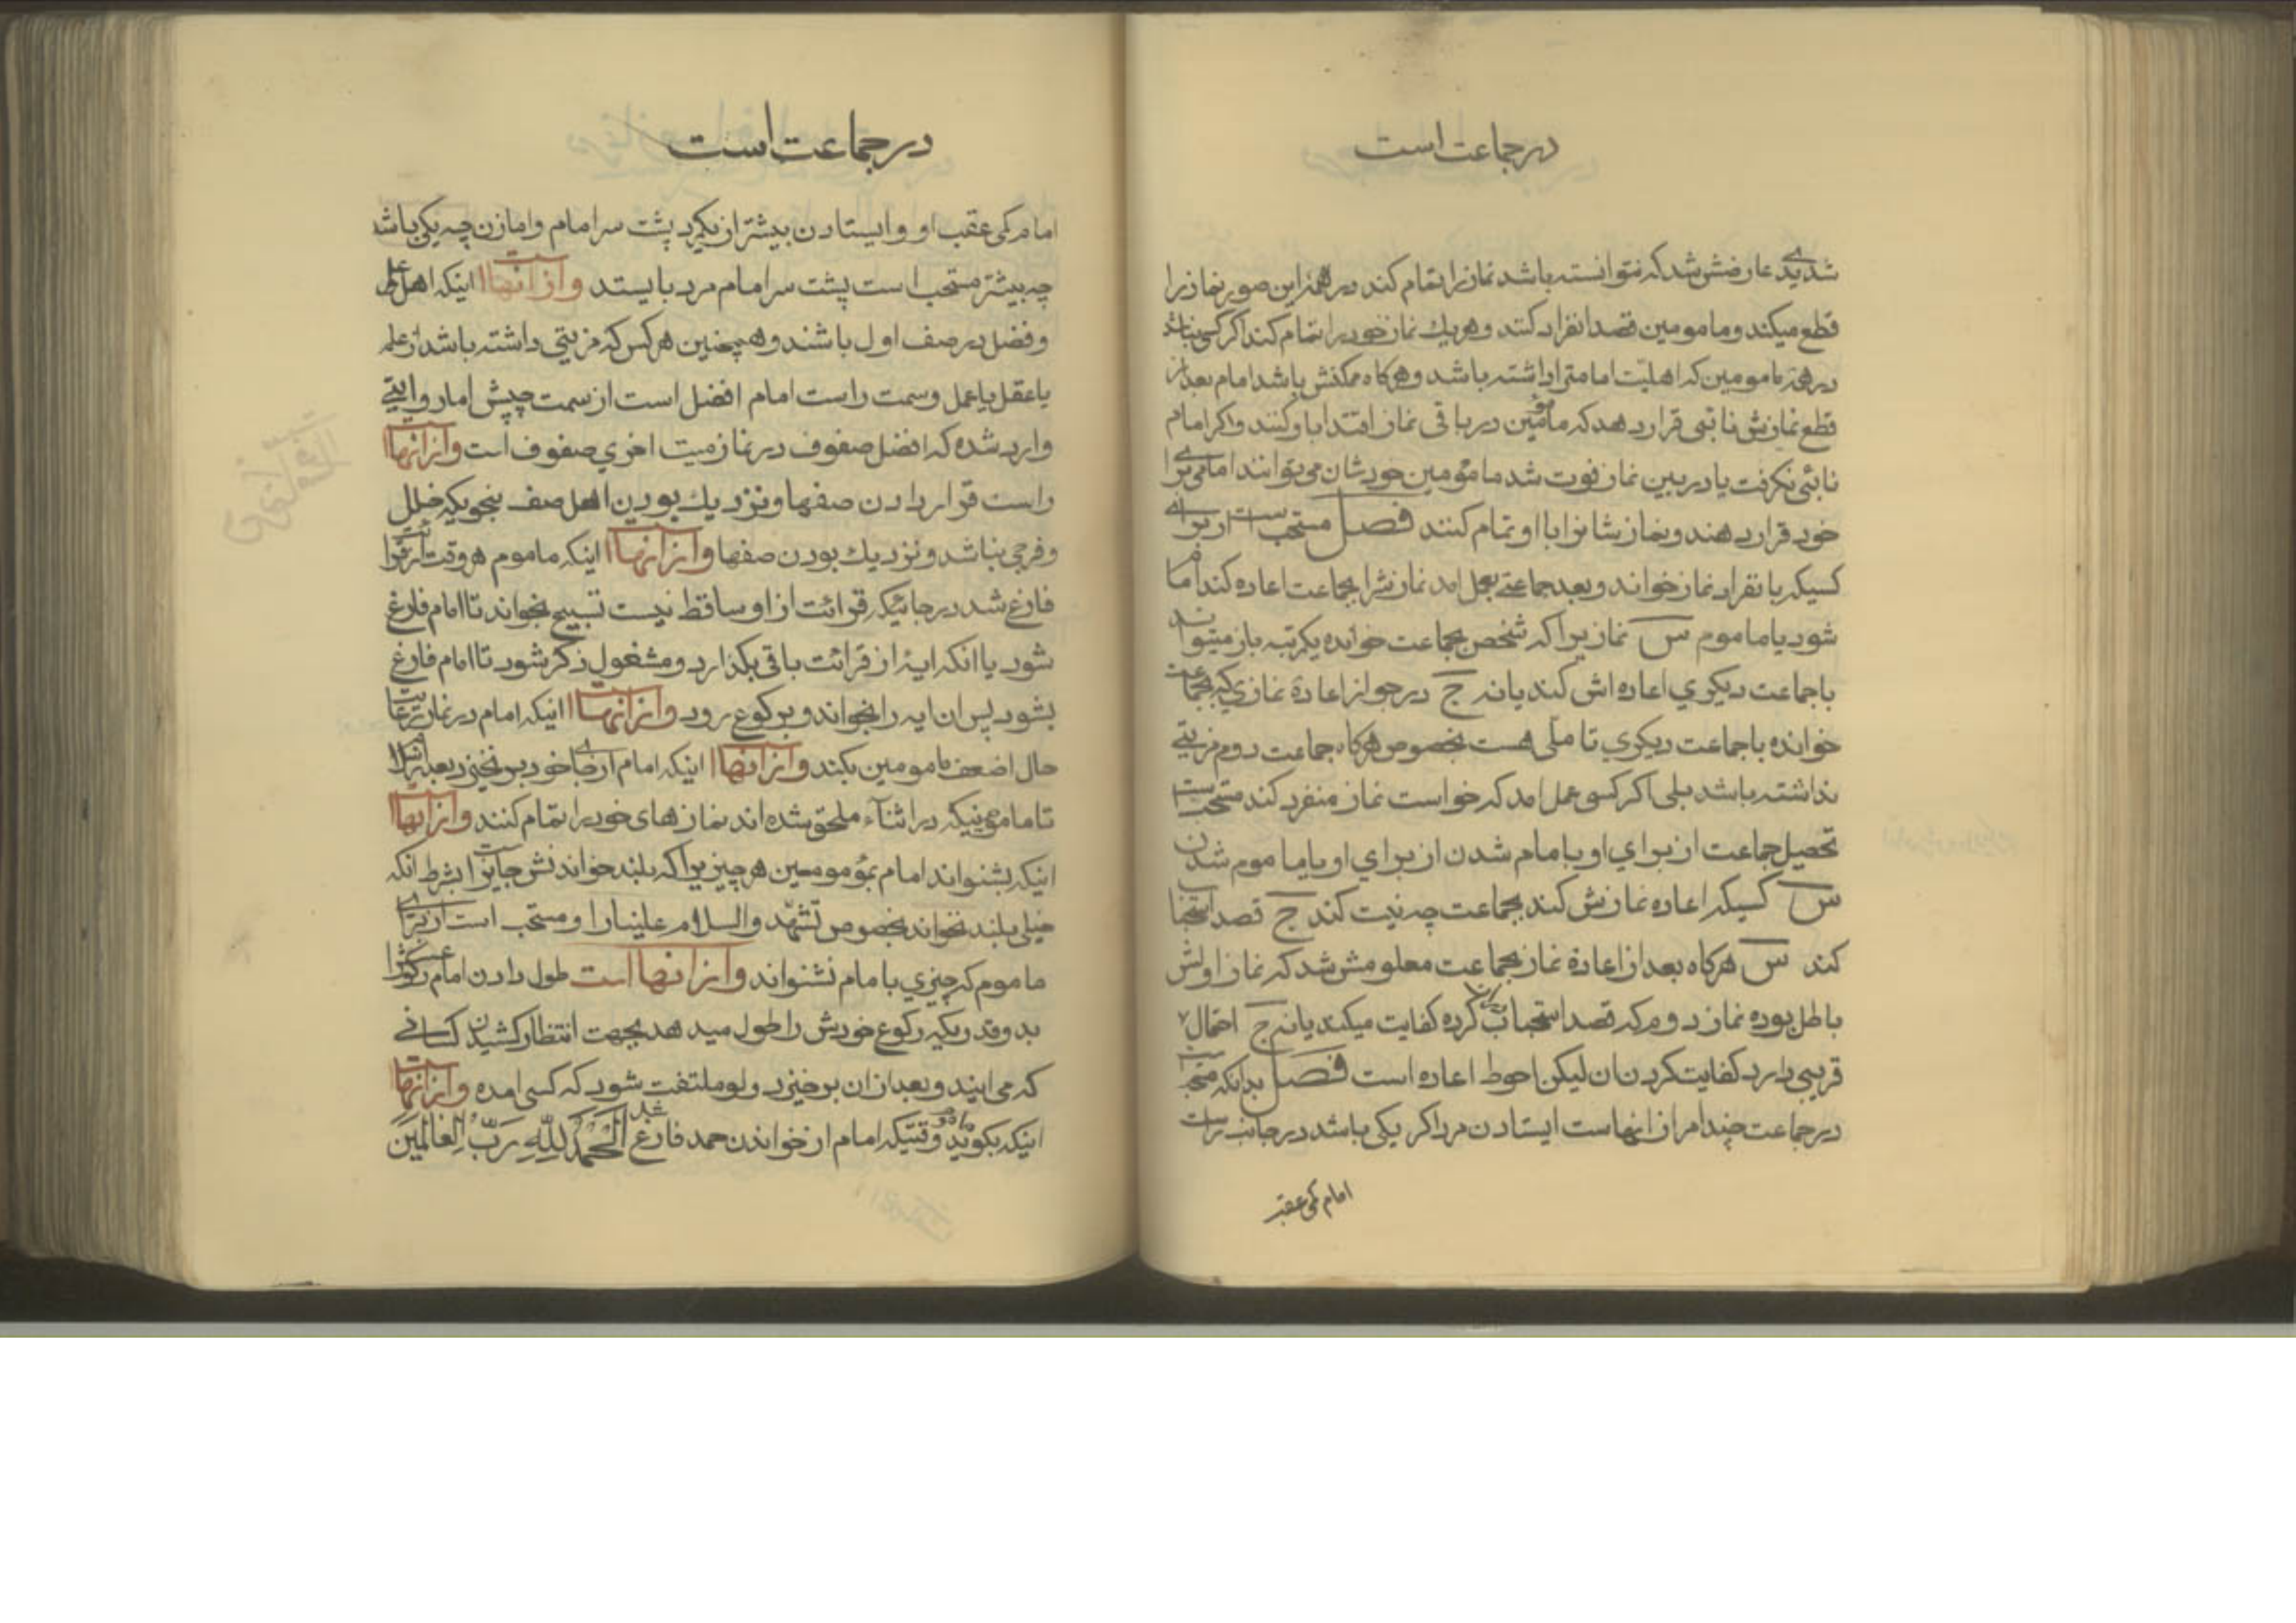 در جماعت است
شدیدی عارضش شد که نتوانسته باشد نماز را تمام کند در همهٔ این صور نماز را
قطع میکند و مامومین قصد انفراد کنند و هر یک نماز خود را تمام کند اگر کسی نباشد
در همه مامومین که اهلیت امامتی را داشته باشد و هرگاه ممکنش باشد امام بعد از
قطع نمازش نائبی قرار دهد که مامومین در باقی نماز اقتدا باو کنند و اگر امام
نائبی نگرفت یا در بین نماز فوت شد مامومین خودشان می توانند امامی برای
خود قرار دهند و نمازشانرا با او تمام کنند فصل مستحب است از برای
کسیکه بانفراد نماز خواند و بعد جماعتی بعمل امد نمازشرا بجماعت اعاده کند امام
شود یا ماموم س نمازیرا که شخص بجماعت خوانده یکمرتبه باز میتواند
با جماعت دیگری اعاده اش کند یا نه ج در جواز اعادهٔ نمازی که بجماعت
خوانده با جماعت دیگری تاملی هست بخصوص هرگاه جماعت دوم مزیتی
نداشته باشد بلی اگر کسی عمل امد که خواست نماز منفرد کند مستحب است
تحصیل جماعت از برای او بامام شدن از برای او یا ماموم شدن
س کسیکه اعاده نمازش کند بجماعت چه نیت کند ج قصد استحباب
کند س هرگاه بعد از اعادهٔ نماز بجماعت معلومش شد که نماز اولش
باطل بوده نماز دوم که قصد استحباب کرده کفایت میکند یا نه ج احتمال
قریبی دارد کفایت کردن ان لیکن احوط اعاده است فصل بدانکه مستحب
در جماعت چند امر از انهاست ایستادن مرد اگر یکی باشد در جانب راست
امام کمی عقب
در جماعت است
امام کمی عقب او و ایستادن بیشتر از یکمرد پشت سر امام و اما زن چه یکی باشد
چه بیشتر مستحب است پشت سر امام مرد بایستد و از انها است اینکه اهل علم
و فضل در صف اول باشند و همچنین هر کس که مزیتی داشته باشد از علم
یا عقل یا عمل و سمت راست امام افضل است از سمت چپش اما روایتی
وارد شده که افضل صفوف در نماز میت اخری صفوف است و از انها است
راست قرار دادن صفها و نزدیک بودن اهل صف بنحویکه خلل
و فرجی نباشد و نزدیک بودن صفها و از انها است اینکه ماموم هر وقت از قرائت
فارغ شد در جائیکه قرائت از او ساقط نیست تسبیح بخواند تا امام فارغ
شود یا انکه ایهٔ از قرائت باقی بگذارد و مشغول ذکر شود تا امام فارغ
بشود پس ان ایه را بخواند و برکوع رود و از انها است اینکه امام در نماز رعایت
حال اضعف مامومین بکند و از انها است اینکه امام از جای خود بر نخیزد بعد از سلام
تا مامومینیکه در اثناء ملحق شده اند نماز های خود را تمام کنند و از انها است
اینکه بشنواند امام بمومومین هر چیزیرا که بلند خواندنش جایز است بشرط انکه
خیلی بلند نخواند بخصوص تشهد و السلام علینا را و مستحب است از برای
ماموم که چیزی بامام نشنواند و از انها است طول دادن امام رکوعش را
بدو قدریکه رکوع خودش را طول میدهد بجهت انتظار کشیدن کسانی
که می ایند و بعد از ان برخیزد و لو ملتفت شود که کسی امده و از انها است
اینکه بگوید ماموم وقتیکه امام از خواندن حمد فارغ شد اَلْحَمْدُ لِلّٰهِ رَبِّ الْعٰالَمینَ